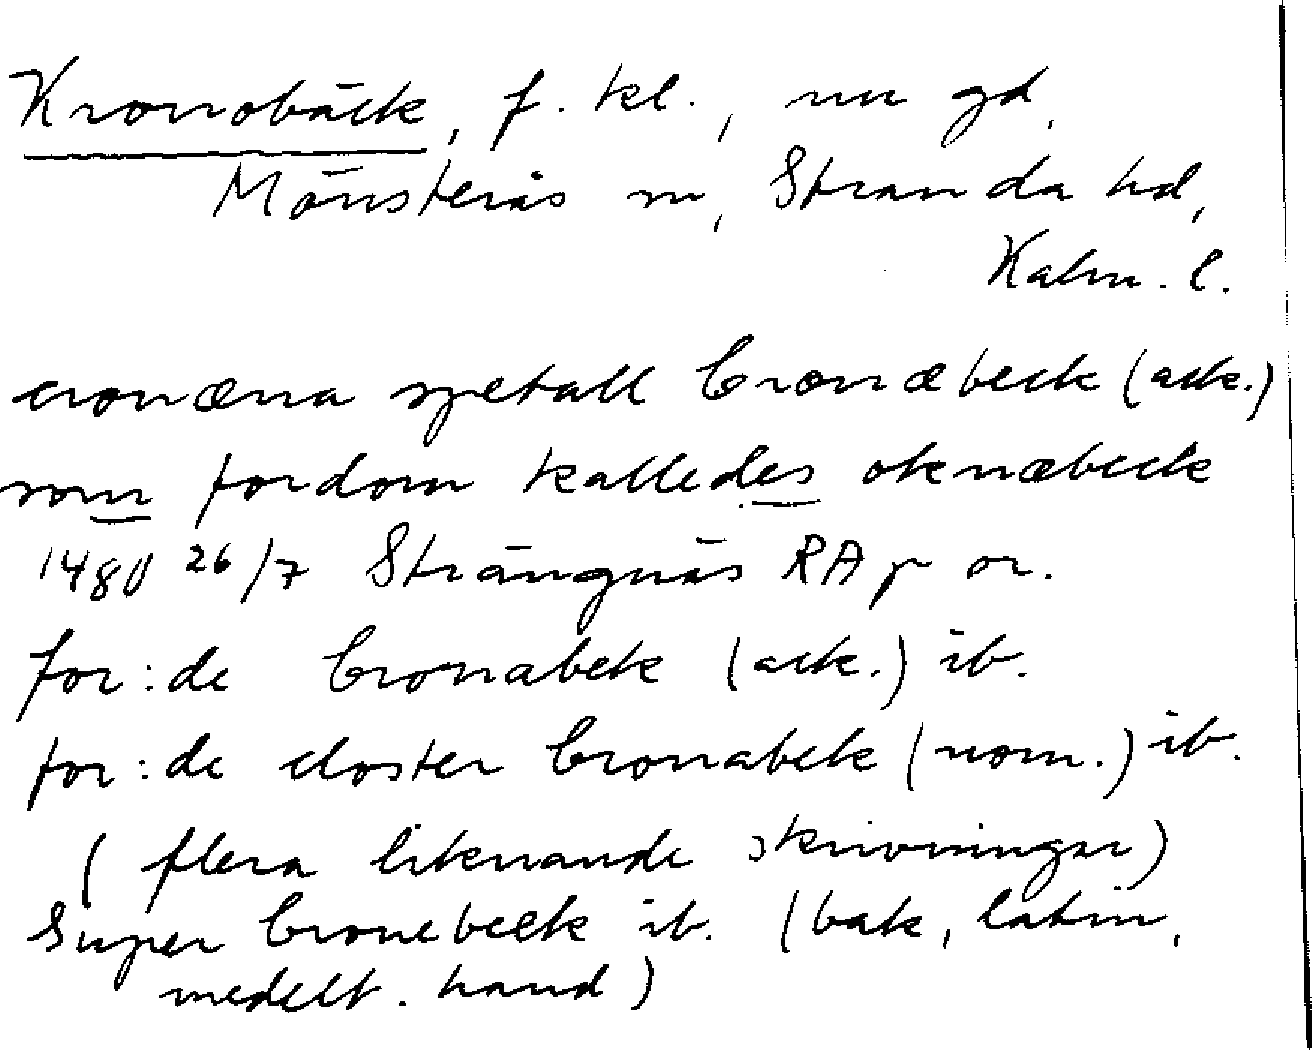 Kronobäck, f. kl., nu gd,
Mönsterås sn, Stranda hd,
Kalm. l.
cronæna spetall Cronæbeck (ack.)
som fordom kalledes oknæbeck
1480 26/7 Strängnäs RA p or.
for:de Cronabek (ack.) ib.
for:de closter Cronabek (nom.) ib.
(flera liknande skrivningar)
Super Cronebeek ib. (bak, latin,
medelt. hand)